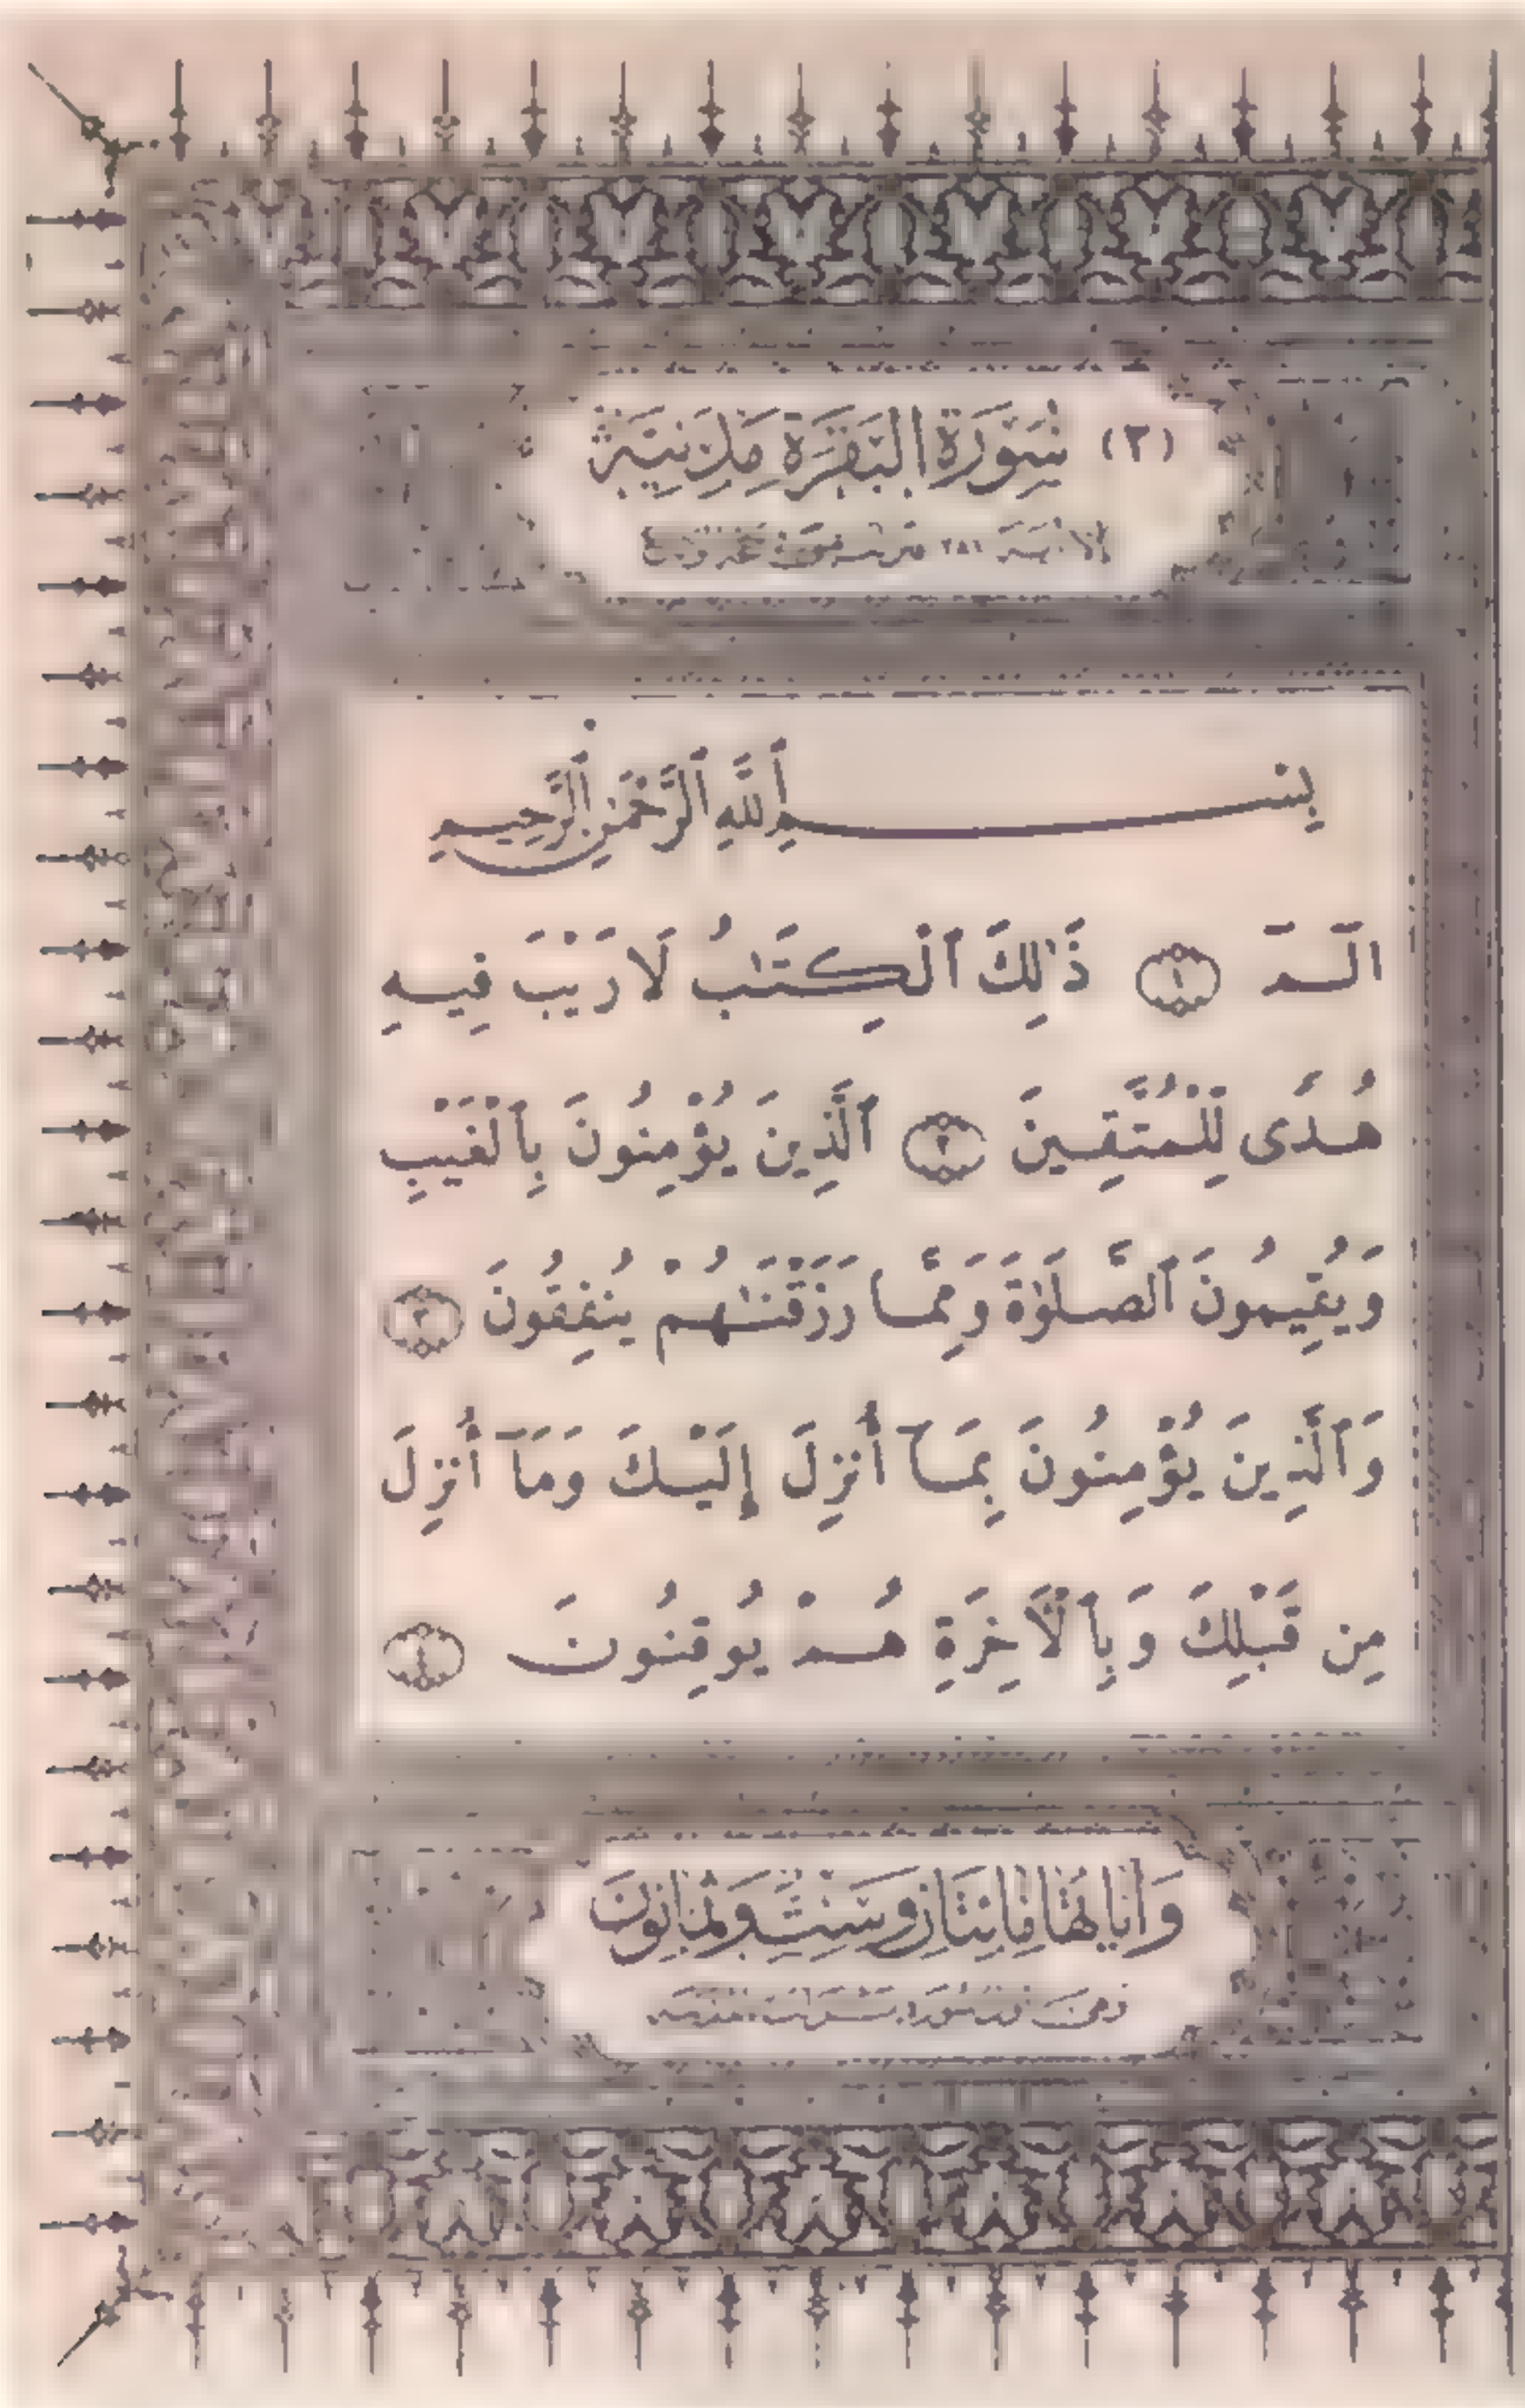 (٢) سُورَةُ البَقَرَةِ مَدَنِيَّةٌ
إلا آية ٢٨١
بِسْمِ ٱللَّهِ ٱلرَّحْمَٰنِ ٱلرَّحِيمِ
الٓمٓ ١ ذَٰلِكَ ٱلْكِتَٰبُ لَا رَيْبَ فِيهِ
هُدًى لِّلْمُتَّقِينَ ٢ ٱلَّذِينَ يُؤْمِنُونَ بِٱلْغَيْبِ
وَيُقِيمُونَ ٱلصَّلَوٰةَ وَمِمَّا رَزَقْنَٰهُمْ يُنفِقُونَ ٣
وَٱلَّذِينَ يُؤْمِنُونَ بِمَآ أُنزِلَ إِلَيْكَ وَمَآ أُنزِلَ
مِن قَبْلِكَ وَبِٱلْأَخِرَةِ هُمْ يُوقِنُونَ ٤
وَآيَاتُهَا مِائَتَانِ وَسِتٌّ وَثَمَانُونَ